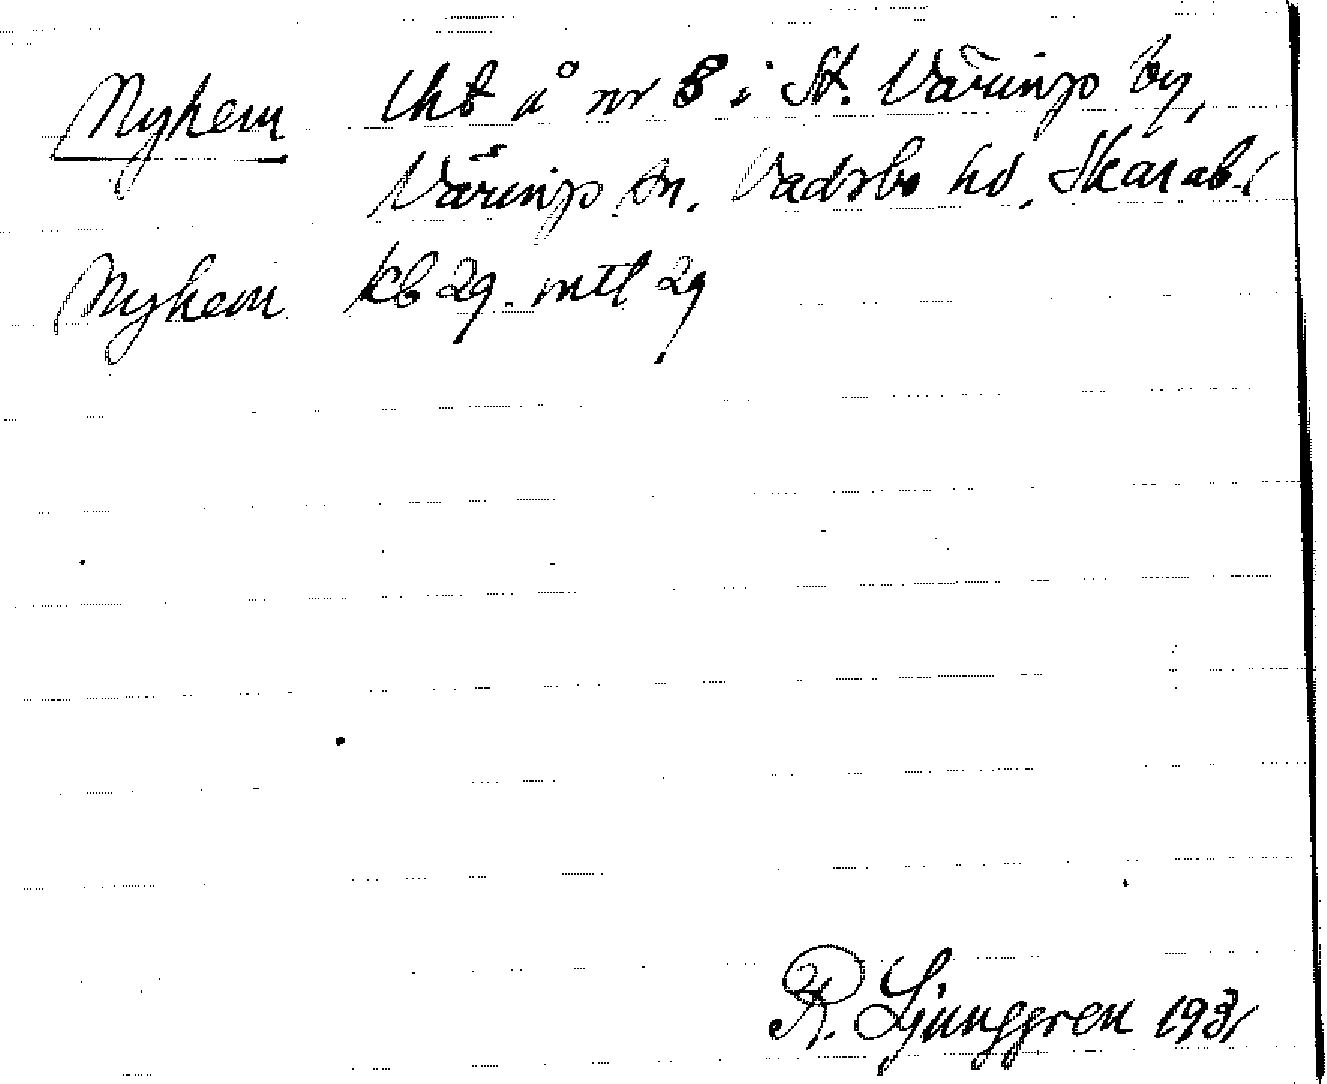 Nyhem lht å nr 8 i St. Värings by,
Värings sn. Vadsbo hd. Skarab. l
Nyhem kb 29. mtl 29
R. Ljunggren 1931